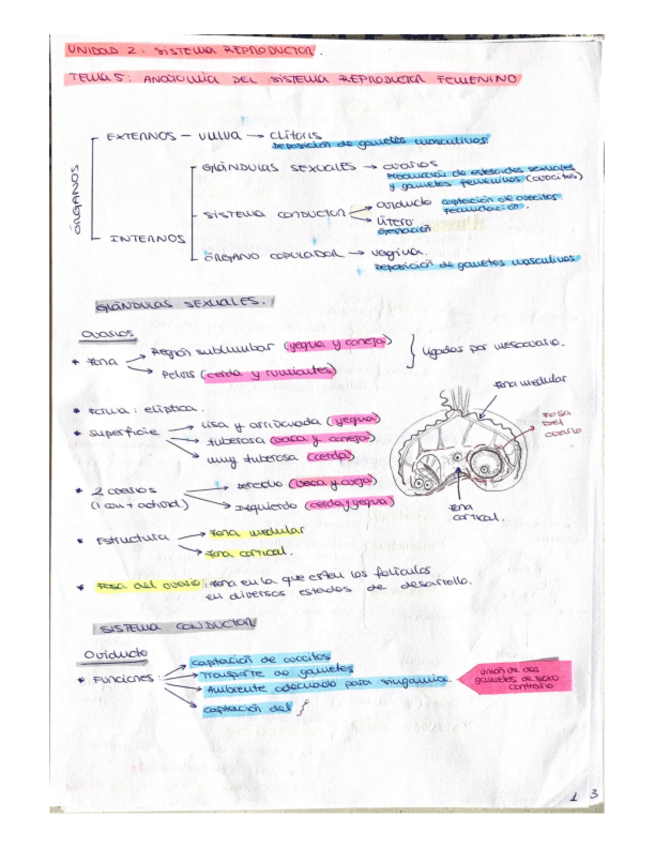 UNIDAD 2: SISTEMA REPRODUCTOR.
TEMA 5: ANATOMIA DEL SISTEMA REPRODUCTOR FEMENINO
ÓRGANOS
EXTERNOS — VULVA → clítoris
Deposición de gametos masculinos
INTERNOS
GLÁNDULAS SEXUALES → ovarios
Producción de esteroides sexuales
y gametos femeninos (ovocitos)
SISTEMA CONDUCTOR
oviducto captación de ovocitos
fecundación.
útero
Gestación
ÓRGANO COPULADOR → vagina.
Deposición de gametos masculinos
GLÁNDULAS SEXUALES.
Ovarios
* Zona → Región sublumbar (yegua y coneja)
→ Pelvis (cerda y rumiantes)
} Ligados por mesovario.
* Forma: elíptica.
* Superficie → lisa y arriñonada (yegua)
→ tuberosa (vaca y coneja)
→ muy tuberosa (cerda)
* 2 ovarios → derecho (vaca y oveja)
(1 con + activid.) → izquierdo (cerda y yegua)
* Estructura → zona medular
→ zona cortical.
zona medular
FOSA
DEL
OVARIO
zona
cortical.
* Fosa del ovario: zona en la que están los folículos
en diversos estados de desarrollo.
SISTEMA CONDUCTOR
Oviducto
* Funciones: → captación de ovocitos
→ Transporte de gametos
→ Ambiente adecuado para singamia
→ captación del }
unión de dos
gametos de sexo
contrario
1 3